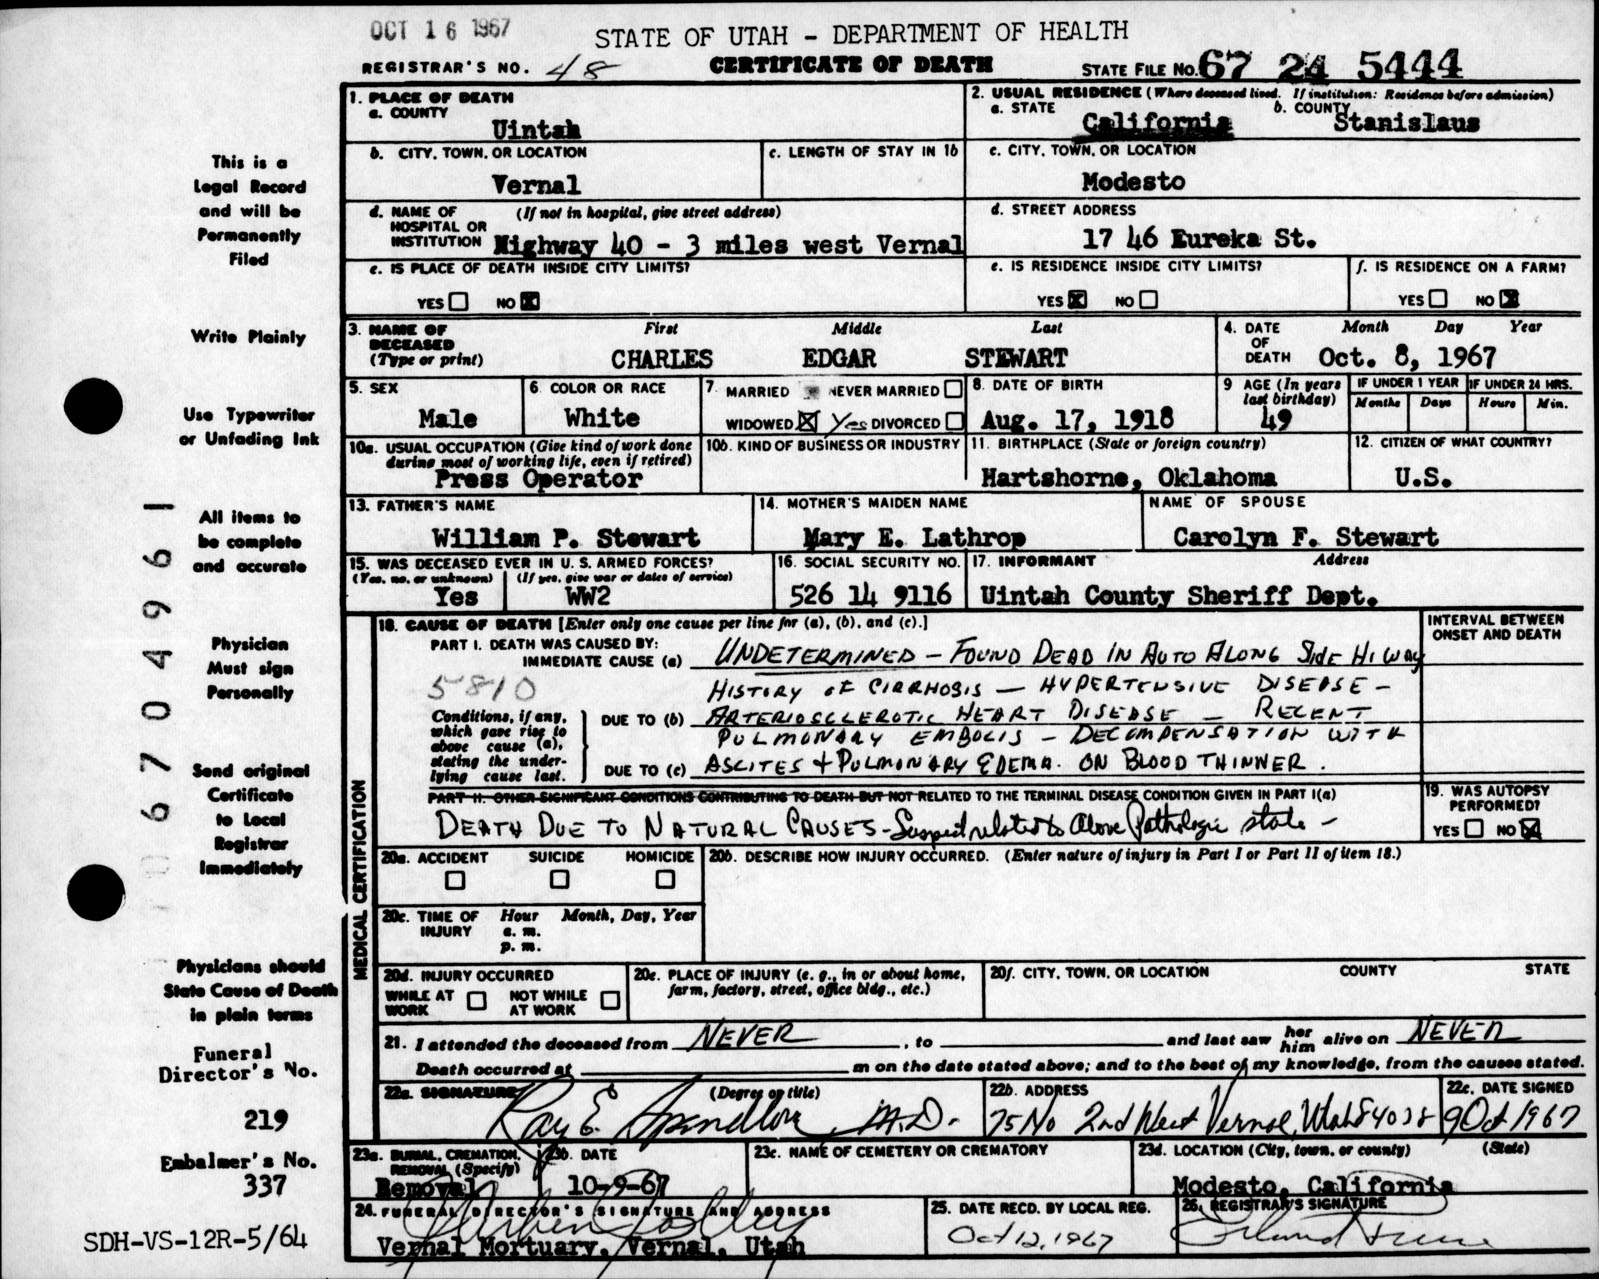 OCT 16 1967
STATE OF UTAH - DEPARTMENT OF HEALTH
REGISTRAR'S NO. 48 CERTIFICATE OF DEATH STATE FILE NO. 67 24 5444
This is a
Legal Record
and will be
Permanently
Filed
Write Plainly
Use Typewriter
or Unfading Ink
All items to
be complete
and accurate
Physician
Must sign
Personally
Send original
Certificate
to Local
Registrar
Immediately
Physicians should
State Cause of Death
in plain terms
Funeral
Director's No.
219
Embalmer's No.
337
SDH-VS-12R-5/64
67049961
1. PLACE OF DEATH
a. COUNTY
Uintah
2. USUAL RESIDENCE (Where deceased lived. If institution: Residence before admission)
a. STATE b. COUNTY
California Stanislaus
b. CITY, TOWN, OR LOCATION c. LENGTH OF STAY IN 1b
Vernal
c. CITY, TOWN, OR LOCATION
Modesto
d. NAME OF (If not in hospital, give street address)
HOSPITAL OR
INSTITUTION Highway 40 - 3 miles west Vernal
d. STREET ADDRESS
17 46 Eureka St.
e. IS PLACE OF DEATH INSIDE CITY LIMITS?
YES NO X
e. IS RESIDENCE INSIDE CITY LIMITS?
YES X NO
f. IS RESIDENCE ON A FARM?
YES NO X
3. NAME OF First Middle Last
DECEASED
(Type or print) CHARLES EDGAR STEWART
4. DATE Month Day Year
OF
DEATH Oct. 8, 1967
5. SEX
Male
6. COLOR OR RACE
White
7. MARRIED NEVER MARRIED
WIDOWED X Yes DIVORCED
8. DATE OF BIRTH
Aug. 17, 1918
9 AGE (In years
last birthday)
49
IF UNDER 1 YEAR IF UNDER 24 HRS.
Months Days Hours Min.
10a. USUAL OCCUPATION (Give kind of work done
during most of working life, even if retired)
Press Operator
10b. KIND OF BUSINESS OR INDUSTRY
11. BIRTHPLACE (State or foreign country)
Hartshorne, Oklahoma
12. CITIZEN OF WHAT COUNTRY?
U.S.
13. FATHER'S NAME
William P. Stewart
14. MOTHER'S MAIDEN NAME
Mary E. Lathrop
NAME OF SPOUSE
Carolyn F. Stewart
15. WAS DECEASED EVER IN U.S. ARMED FORCES?
(Yes, no, or unknown) (If yes, give war or dates of service)
Yes WW2
16. SOCIAL SECURITY NO.
526 14 9116
17. INFORMANT Address
Uintah County Sheriff Dept.
MEDICAL CERTIFICATION
18. CAUSE OF DEATH [Enter only one cause per line for (a), (b), and (c).]
INTERVAL BETWEEN
ONSET AND DEATH
PART I. DEATH WAS CAUSED BY:
IMMEDIATE CAUSE (a) UNDETERMINED - FOUND DEAD IN AUTO ALONG SIDE HI WAY
5810
HISTORY OF CIRRHOSIS - HYPERTENSIVE DISEASE -
Conditions, if any,
which gave rise to
above cause (a),
stating the under-
lying cause last.
DUE TO (b) ARTERIOSCLEROTIC HEART DISEASE - RECENT
PULMONARY EMBOLIS - DECOMPENSATION WITH
DUE TO (c) ASCITES + PULMONARY EDEMA. ON BLOOD THINNER.
PART II. OTHER SIGNIFICANT CONDITIONS CONTRIBUTING TO DEATH BUT NOT RELATED TO THE TERMINAL DISEASE CONDITION GIVEN IN PART I(a)
DEATH DUE TO NATURAL CAUSES - Suspect related to above Pathologic state -
19. WAS AUTOPSY
PERFORMED?
YES NO X
20a. ACCIDENT SUICIDE HOMICIDE
20b. DESCRIBE HOW INJURY OCCURRED. (Enter nature of injury in Part I or Part II of item 18.)
20c. TIME OF Hour Month, Day, Year
INJURY a. m.
p. m.
20d. INJURY OCCURRED
WHILE AT NOT WHILE
WORK AT WORK
20e. PLACE OF INJURY (e. g., in or about home,
farm, factory, street, office bldg., etc.)
20f. CITY, TOWN, OR LOCATION COUNTY STATE
21. I attended the deceased from NEVER, to and last saw her him alive on NEVER
Death occurred at m on the date stated above; and to the best of my knowledge, from the causes stated.
22a. SIGNATURE (Degree or title)
Ray E. Spendlove M.D.
22b. ADDRESS
75 No 2nd West Vernal, Utah 84078
22c. DATE SIGNED
9 Oct 1967
23a. BURIAL, CREMATION,
REMOVAL (Specify)
Removal
23b. DATE
10-9-67
23c. NAME OF CEMETERY OR CREMATORY
23d. LOCATION (City, town, or county) (State)
Modesto, California
24. FUNERAL DIRECTOR'S SIGNATURE AND ADDRESS
Vernal Mortuary, Vernal, Utah
25. DATE RECD. BY LOCAL REG.
Oct 12, 1967
26. REGISTRAR'S SIGNATURE